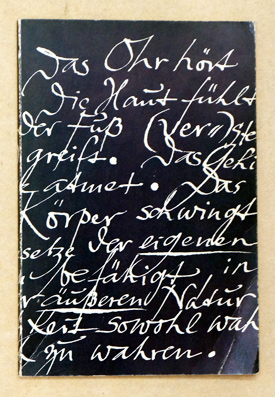 Das Ohr hört
Die Haut fühlt
der Fuß (ver")ste
greift. Das Gehi
atmet. Das
Körper schwingt
setze der eigenen
befähigt in
r äußeren Natur
keit sowohl wah
zu wahren.